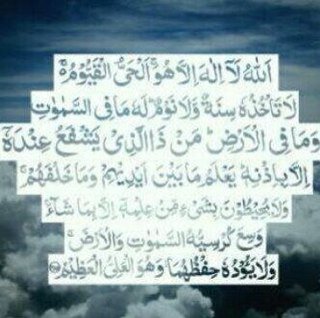 اَللّٰهُ لَآ اِلٰهَ اِلَّا هُوَ ۚ اَلْحَىُّ الْقَيُّوْمُ ۚ
لَا تَاْخُذُهٗ سِنَةٌ وَّلَا نَوْمٌ ؕ لَهٗ مَا فِى السَّمٰوٰتِ
وَمَا فِى الْاَرْضِ ؕ مَنْ ذَا الَّذِىْ يَشْفَعُ عِنْدَهٗۤ
اِلَّا بِاِذْنِهٖ ؕ يَعْلَمُ مَا بَيْنَ اَيْدِيْهِمْ وَمَا خَلْفَهُمْ ۚ
وَلَا يُحِيْطُوْنَ بِشَىْءٍ مِّنْ عِلْمِهٖۤ اِلَّا بِمَا شَآءَ ۚ
وَسِعَ كُرْسِيُّهُ السَّمٰوٰتِ وَالْاَرْضَ ۚ
وَلَا يَـُٔوْدُهٗ حِفْظُهُمَا ۚ وَهُوَ الْعَلِىُّ الْعَظِيْمُ